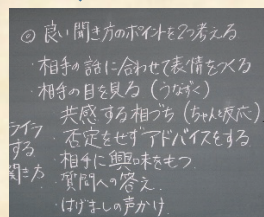 ◎良い聞き方のポイントを2つ考える
・相手の話に合わせて表情をつくる
・相手の目を見る(うなずく)
共感する相づち(ちゃんと反応)
・否定をせずアドバイスをする
・相手に興味をもつ
・質問への答え.
・はげましの声かけ.
する
聞き方